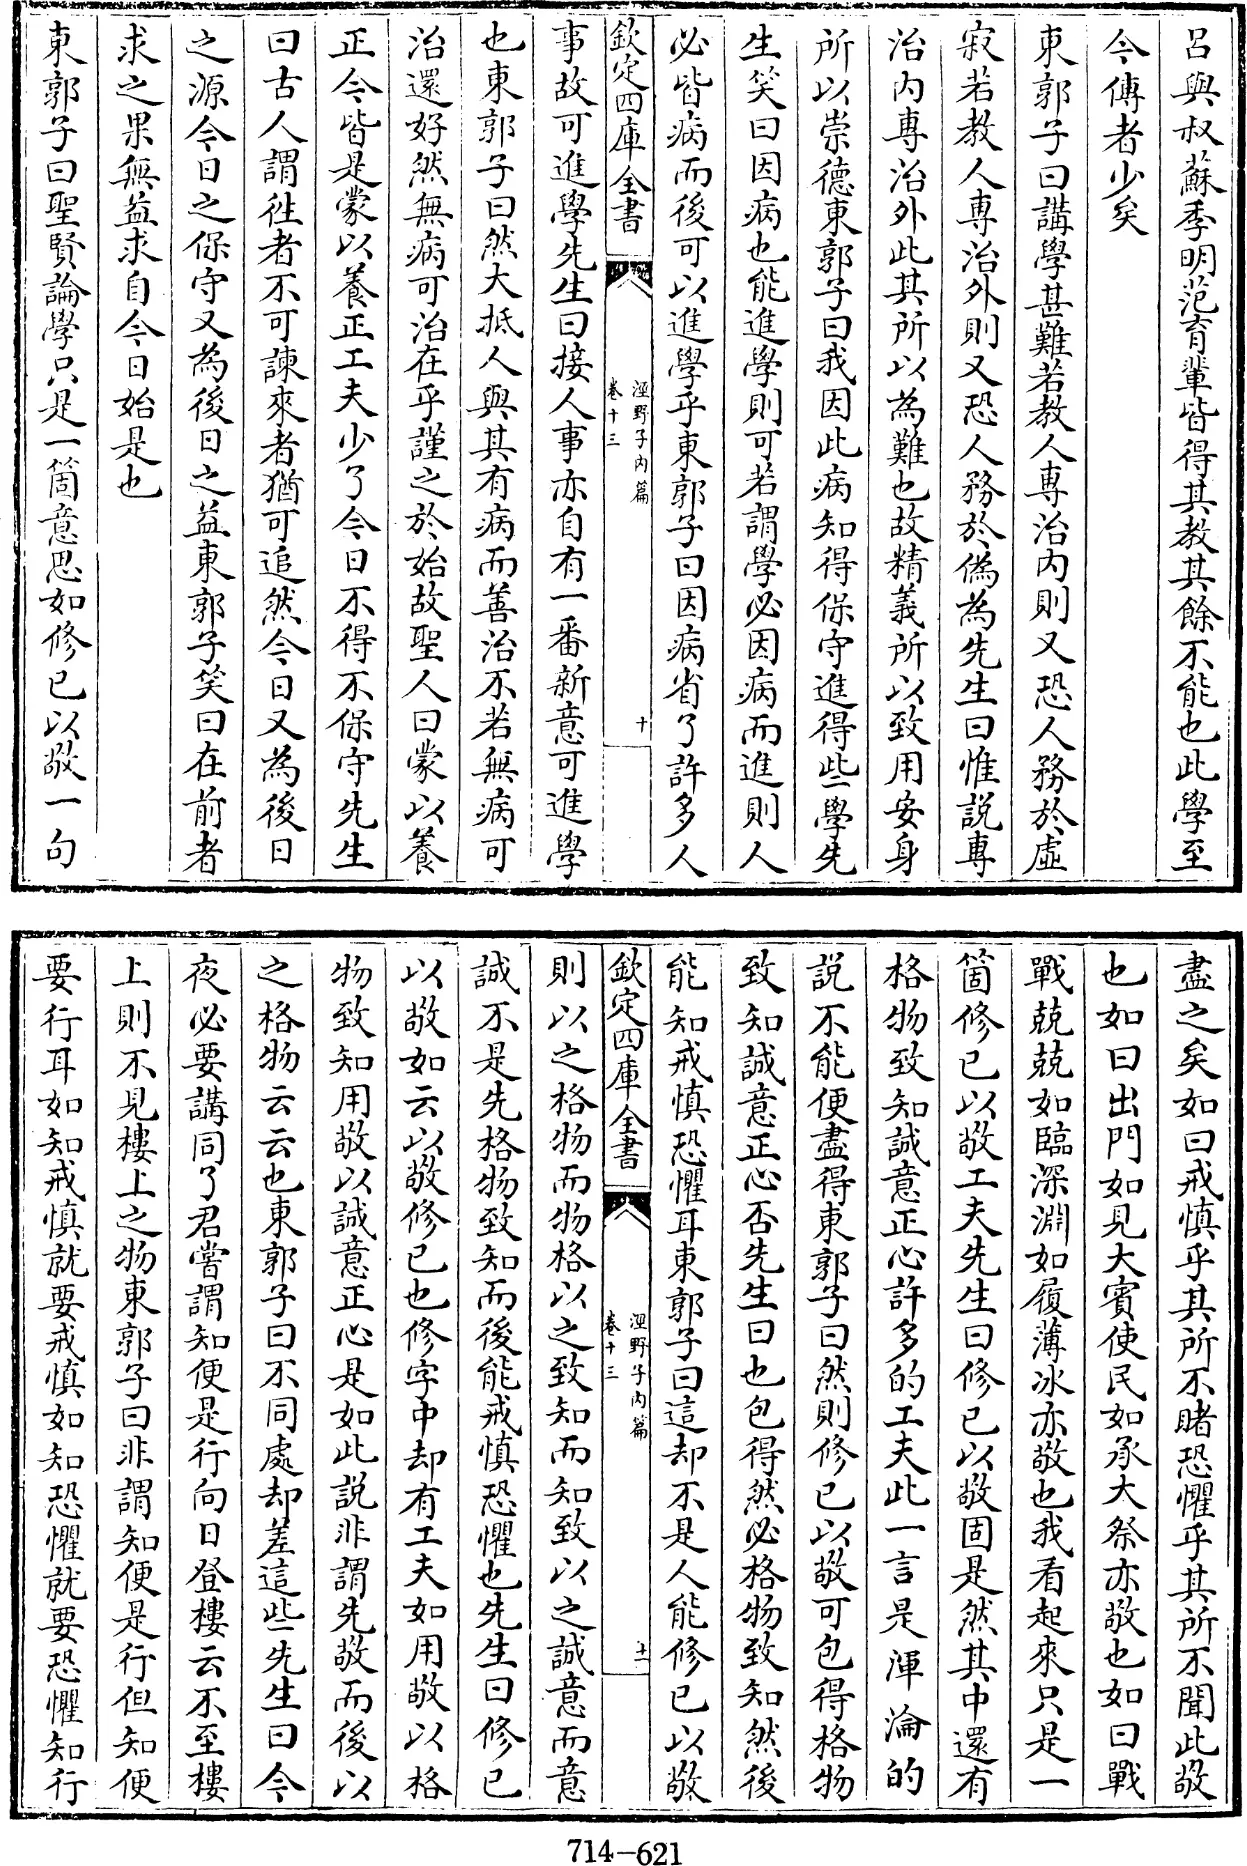 呂與叔蘇季明范育輩皆得其教其餘不能也此學至
今傳者少矣
東郭子曰講學甚難若教人專治内則又恐人務於虛
寂若教人專治外則又恐人務於偽為先生曰惟説專
治内專治外此其所以為難也故精義所以致用安身
所以崇德東郭子曰我因此病知得保守進得些學先
生笑曰因病也能進學則可若謂學必因病而進則人
必皆病而後可以進學乎東郭子曰因病省了許多人
欽定四庫全書
涇野子内篇
卷十三
十
事故可進學先生曰接人事亦自有一番新意可進學
也東郭子曰然大抵人與其有病而善治不若無病可
治還好然無病可治在乎謹之於始故聖人曰蒙以養
正今皆是蒙以養正工夫少了今日不得不保守先生
曰古人謂徃者不可諫來者猶可追然今日又為後日
之源今日之保守又為後日之益東郭子笑曰在前者
求之果無益求自今日始是也
東郭子曰聖賢論學只是一箇意思如修已以敬一句
盡之矣如曰戒慎乎其所不睹恐懼乎其所不聞此敬
也如曰出門如見大賓使民如承大祭亦敬也如曰戰
戰兢兢如臨深淵如履薄冰亦敬也我看起來只是一
箇修已以敬工夫先生曰修已以敬固是然其中還有
格物致知誠意正心許多的工夫此一言是渾淪的
説不能便盡得東郭子曰然則修已以敬可包得格物
致知誠意正心否先生曰也包得然必格物致知然後
能知戒慎恐懼耳東郭子曰這却不是人能修已以敬
欽定四庫全書
涇野子内篇
卷十三
十一
則以之格物而物格以之致知而知致以之誠意而意
誠不是先格物致知而後能戒慎恐懼也先生曰修已
以敬如云以敬修已也修字中却有工夫如用敬以格
物致知用敬以誠意正心是如此説非謂先敬而後以
之格物云云也東郭子曰不同處却差這些先生曰今
夜必要講同了君嘗謂知便是行向日登樓云不至樓
上則不見樓上之物東郭子曰非謂知便是行但知便
要行耳如知戒慎就要戒慎如知恐懼就要恐懼知行
714-621